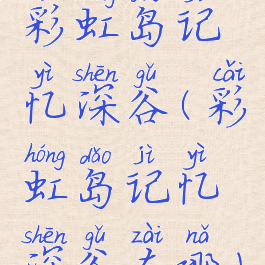 彩虹岛记
yì shēn gǔ cǎi
忆深谷(彩
hóng dǎo jì yì
虹岛记忆
shēn gǔ zài nǎ
深谷在哪)